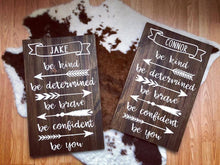 JAKE
be kind
be determined
be brave
be confident
be you
CONNOR
be kind
be determined
be brave
be confident
be you